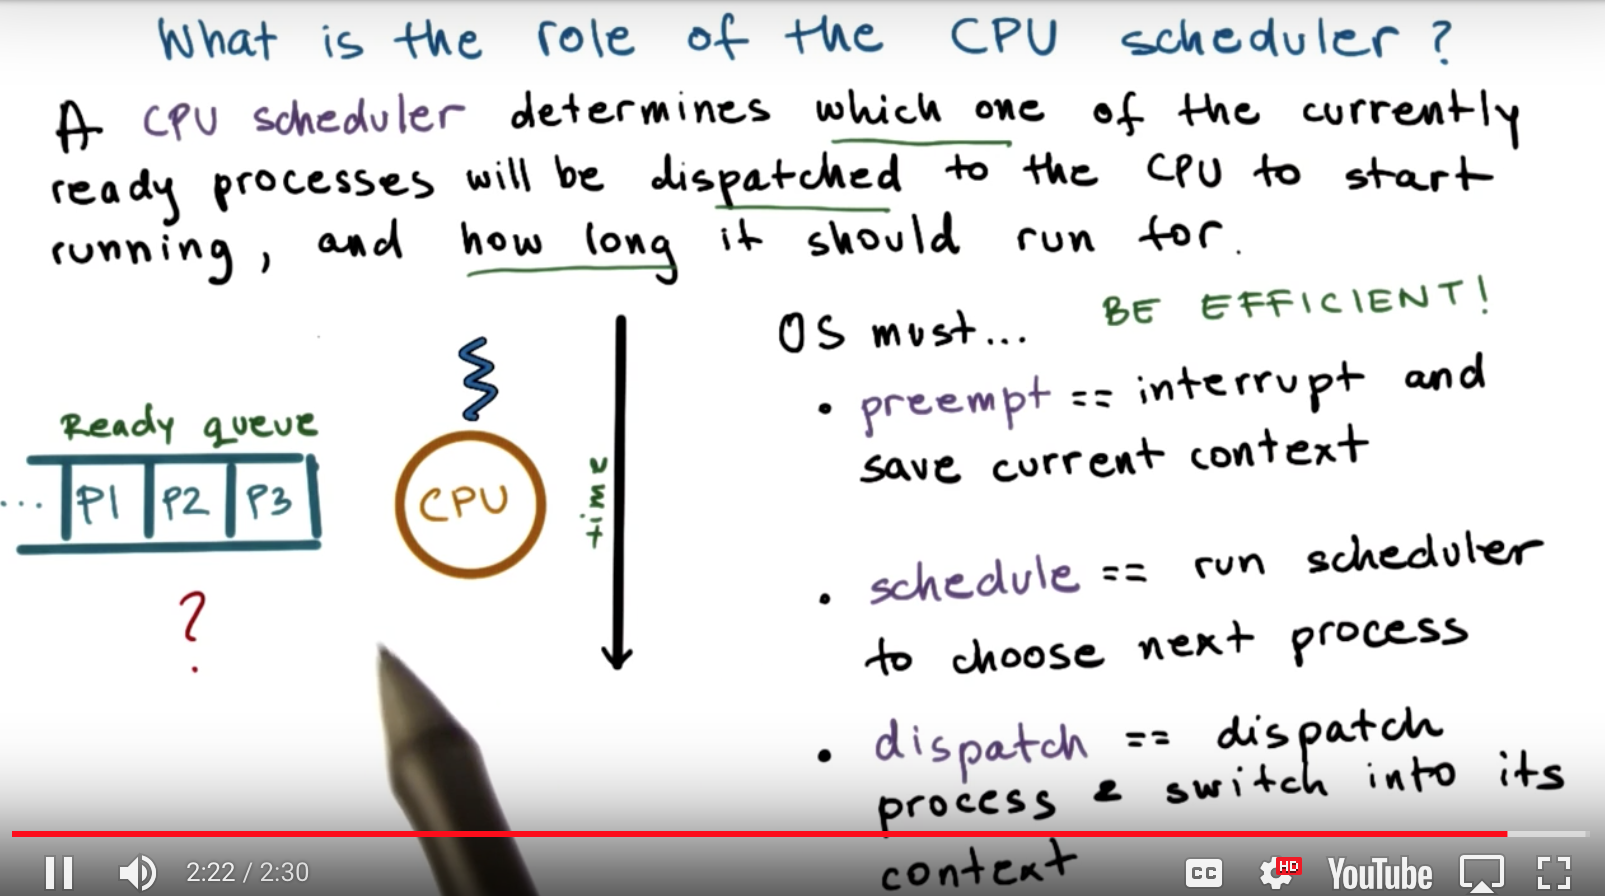 What is the role of the CPU scheduler?
A CPU scheduler determines which one of the currently
ready processes will be dispatched to the CPU to start
running, and how long it should run for.
BE EFFICIENT!
OS must...
• preempt == interrupt and
save current context
• schedule == run scheduler
to choose next process
• dispatch == dispatch
process & switch into its
context
Ready queue
... P1 P2 P3
?
CPU
time
2:22 / 2:30
CC
HD
YouTube